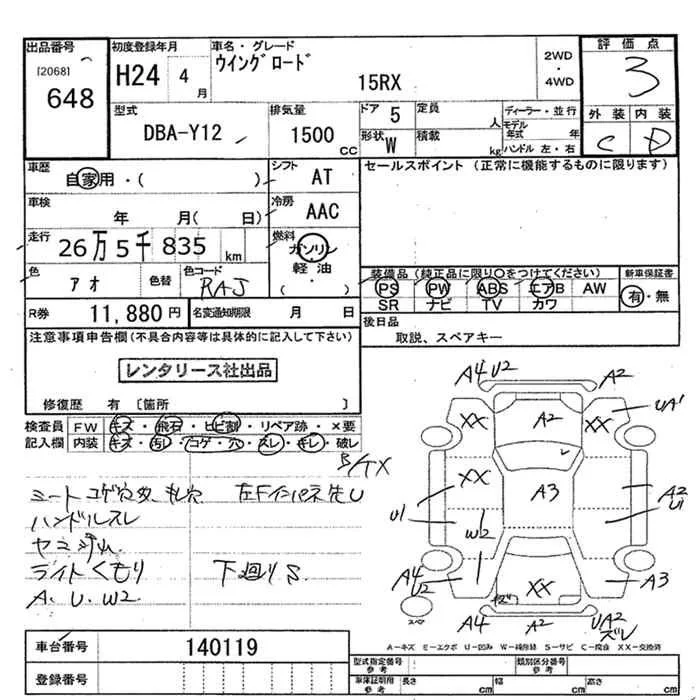 出品番号
[2068]
648
初度登録年月
H24 4月
車名・グレード
ウイングロード
15RX
2WD
・
4WD
評価点
3
外装 内装
C D
型式
DBA-Y12
排気量
1500 CC
ドア 5
形状 W
定員 人
積載 kg
ディーラー・並行
モデル年式 年
ハンドル 左・右
車歴
自家用・( )
シフト AT
セールスポイント (正常に機能するものに限ります)
車検
年 月( 日)
冷房 AAC
走行
26万5千835 km
燃料
ガソリン
軽油
( )
色
アオ
色替
色コード
RAJ
装備品(純正品に限り○をつけてください)
PS PW ABS エアB AW
SR ナビ TV カワ
新車保証書
有・無
R券 11,880円
名変通知期限 月 日
後日品
取説、スペアキー
注意事項申告欄(不具合内容等は具体的に記入して下さい)
レンタリース社出品
修復歴 有 〔箇所 〕
検査員記入欄
FW キズ・飛石・ヒビ割・リペア跡・×要
内装 キズ・汚レ・コゲ・穴・スレ・キレ・破レ
ハンドルスレ
ヤニ汚れ
ライトくもり 下廻りS
A.U.W2
A4 U2 A2
XX A2 XX UA1
XX A3 A2
U1
U1 W2
A4
U2 XX A3
A4 A2 UA2
ズレ
スペア
A―キズ E―エクボ U―凹み W―補修跡 S―サビ C―腐食 XX―交換済
車台番号 140119
登録番号
型式指定番号
参考
類別区分番号
参考
車庫証明用
参考
長さ cm 幅 cm 高さ cm